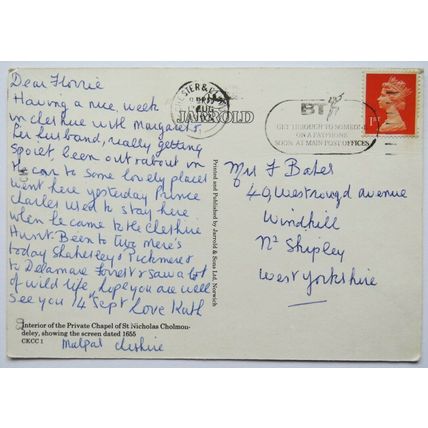 Dear Florrie
Having a nice week
in cheshire with Margaret &
her husband, really getting
spoiet, been out & about in
the car to some lovely places
went here yesterday Prince
Charles used to stay here
when he came to the cheshire
Hunt. Been to two mere's
today Shakerley's Pickmere &
to Delamare Forest & saw a lot
of wild life, hope you are well
see you 14th Sept love Ruth
Interior of the Private Chapel of St Nicholas Cholmon-
deley, showing the screen dated 1655
CKCC 1
Malpas cheshire
Printed and Published by Jarrold & Sons Ltd, Norwich
JARROLD
AUG
BT
GET THROUGH TO SOMEONE
ON A PAYPHONE
SOON AT MAIN POST OFFICES
1ST
Mrs F Bates
49 Westroyd avenue
Windhill
Nr Shipley
West Yorkshire